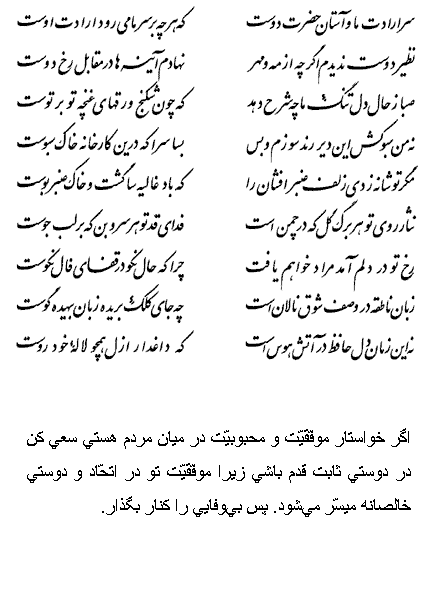 سر ارادت ما و آستان حضرت دوست که هر چه بر سر ما می رود ارادت اوست
نظیر دوست ندیدم اگر چه از مه و مهر نهادم آینه ها در مقابل رخ دوست
صبا ز حال دل تنگ ما چه شرح دهد که چون شکنج ورقهای غنچه تو بر توست
نه من سبوکش این دیر رندسوزم و بس بسا سرا که درین کارخانه خاک سبوست
مگر تو شانه زدی زلف عنبرافشان را که باد غالیه سا گشت و خاک عنبربوست
نثار روی تو هر برگ گل که در چمن است فدای قد تو هر سروبن که بر لب جوست
رخ تو در دلم آمد مراد خواهم یافت چرا که حال نکو در قفای فال نکوست
زبان ناطقه در وصف شوق نالان است چه جای کلک بریده زبان بیهده گوست
نه این زمان دل حافظ در آتش هوس است که داغدار ازل همچو لاله خودروست
اگر خواستار موفّقيّت و محبوبيّت در ميان مردم هستي سعي كن
در دوستي ثابت قدم باشي زيرا موفّقيّت تو در اتحّاد و دوستي
خالصانه ميسّر مي‌شود. پس بي‌وفايي را كنار بگذار.